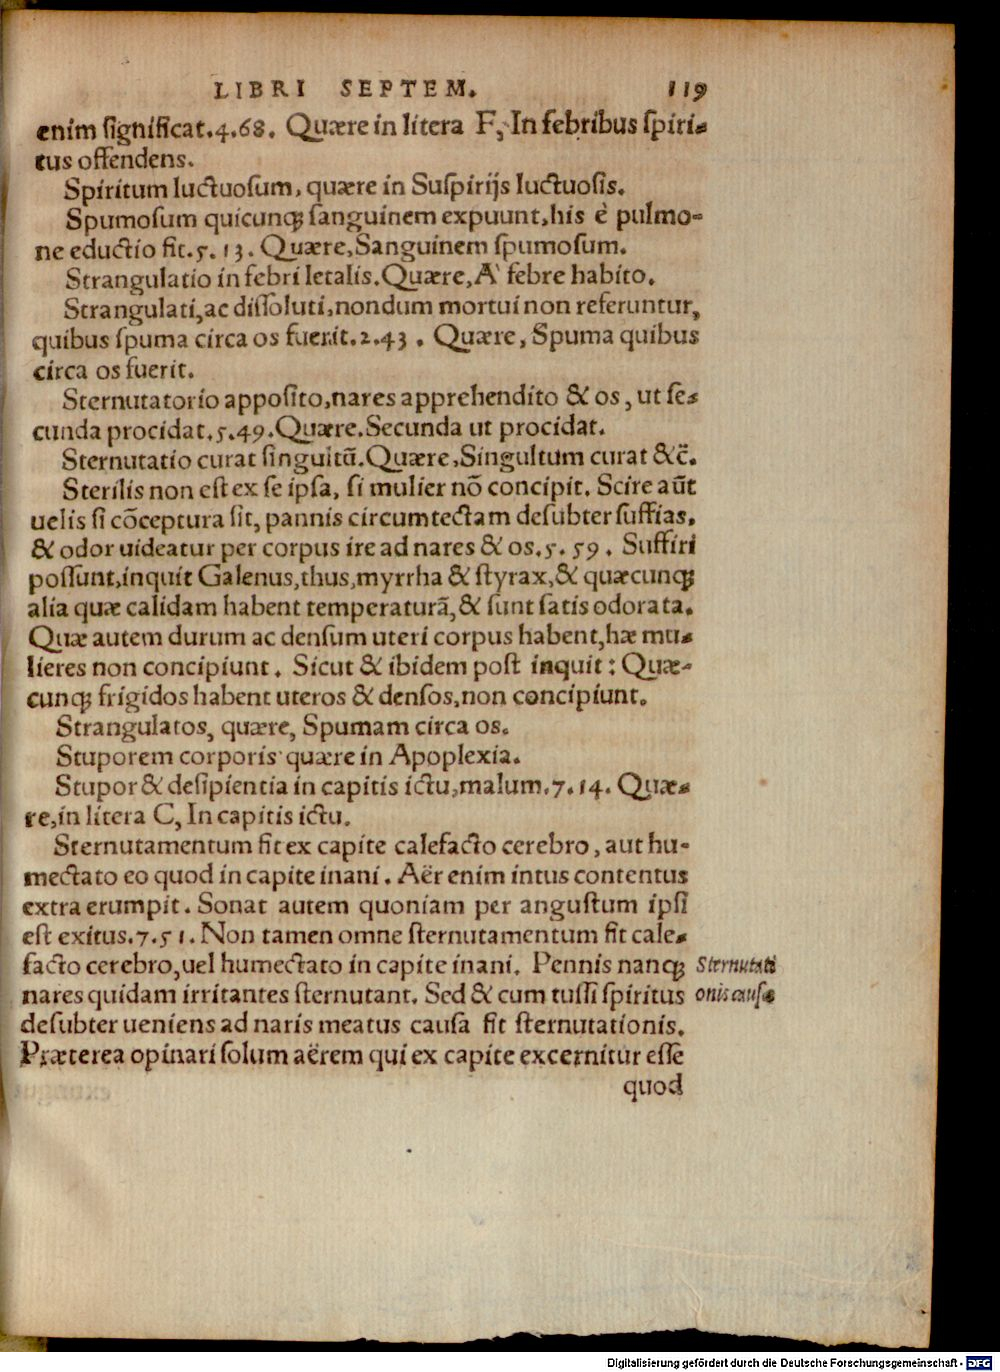 LIBRI SEPTEM. 119
enim significat.4.68. Quære in litera F, In febribus spiri-
tus offendens.
Spiritum luctuosum, quære in Suspirijs luctuosis.
Spumosum quicunq; sanguinem expuunt, his è pulmo-
ne eductio fit.5.13. Quære, Sanguinem spumosum.
Strangulatio in febri letalis. Quære, A' febre habito.
Strangulati, ac dissoluti, nondum mortui non referuntur,
quibus spuma circa os fuerit.2.43. Quære, Spuma quibus
circa os fuerit.
Sternutatorio apposito, nares apprehendito & os, ut se-
cunda procidat.5.49. Quære. Secunda ut procidat.
Sternutatio curat singultū. Quære, Singultum curat &c̄.
Sterilis non est ex se ipsa, si mulier nō concipit. Scire aūt
uelis si cōceptura sit, pannis circumtectam desubter suffias.
& odor uideatur per corpus ire ad nares & os.5.59. Suffiri
possunt, inquit Galenus, thus, myrrha & styrax, & quæcunq;
alia quæ calidam habent temperaturā, & sunt satis odorata.
Quæ autem durum ac densum uteri corpus habent, hæ mu-
lieres non concipiunt. Sicut & ibidem post inquit: Quæ-
cunq; frigidos habent uteros & densos, non concipiunt.
Strangulatos, quære, Spumam circa os.
Stuporem corporis quære in Apoplexia.
Stupor & desipientia in capitis ictu, malum.7.14. Quæ-
re, in litera C, In capitis ictu.
Sternutamentum fit ex capite calefacto cerebro, aut hu-
mectato eo quod in capite inani. Aër enim intus contentus
extra erumpit. Sonat autem quoniam per angustum ipsi
est exitus.7.51. Non tamen omne sternutamentum fit cale-
facto cerebro, uel humectato in capite inani. Pennis nanq; Sternutati
nares quidam irritantes sternutant. Sed & cum tussi spiritus onis causæ
desubter ueniens ad naris meatus causa fit sternutationis.
Præterea opinari solum aërem qui ex capite excernitur esse
quod
Digitalisierung gefördert durch die Deutsche Forschungsgemeinschaft - DFG